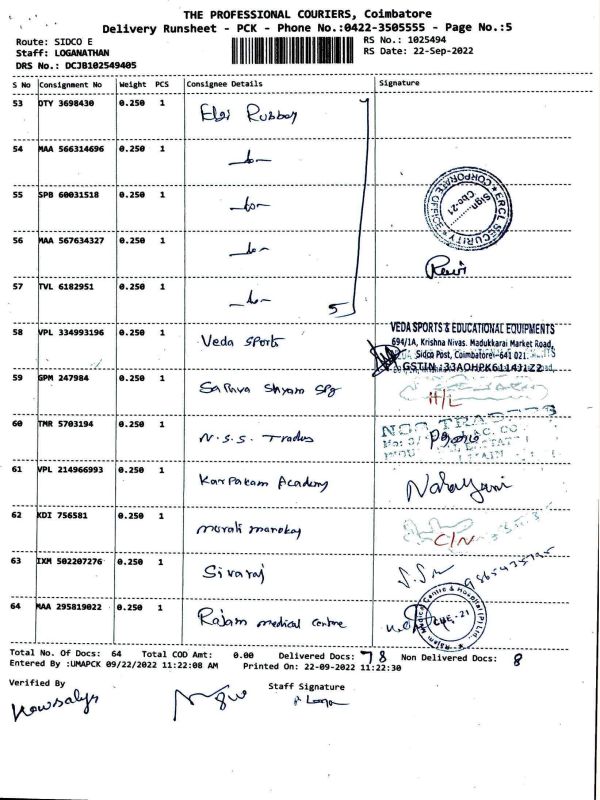 THE PROFESSIONAL COURIERS, Coimbatore
Delivery Runsheet - PCK - Phone No.:0422-3505555 - Page No.:5
Route: SIDCO E
RS No.: 1025494
Staff: LOGANATHAN
RS Date: 22-Sep-2022
DRS No.: DCJB102549405
S No Consignment No Weight PCS Consignee Details Signature
53 DTY 3698430 0.250 1
54 MAA 566314696 0.250 1
55 SPB 60031518 0.250 1
ERCL SECURITY
CORPORATE OFFICE
Sign
Cbe-21
56 MAA 567634327 0.250 1
Ravi
57 TVL 6182951 0.250 1
5
58 VPL 334993196 0.250 1 Veda Sports
VEDA SPORTS & EDUCATIONAL EQUIPMENTS
694/1A, Krishna Nivas. Madukkarai Market Road,
Sidco Post, Coimbatore-641 021.
GSTIN :33AOHPK6114J1Z2
59 GPM 247984 0.250 1
H/L
60 TMR 5703194 0.250 1 N.S.S. Trades
61 VPL 214966993 0.250 1 Karpakam Academy Narayani
62 KDI 756581 0.250 1 murali manokar
C/N
63 IXM 502207276 0.250 1 Sivaraj
64 MAA 295819022 0.250 1 Rajam medical centre
CBE-21
Total No. Of Docs: 64 Total COD Amt: 0.00 Delivered Docs: 78 Non Delivered Docs: 8
Entered By :UMAPCK 09/22/2022 11:22:08 AM Printed On: 22-09-2022 11:22:30
Verified By Staff Signature
Kowsalya